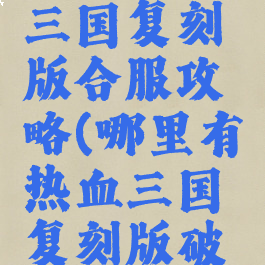 三国复刻
版合服攻
略(哪里有
热血三国
复刻版破